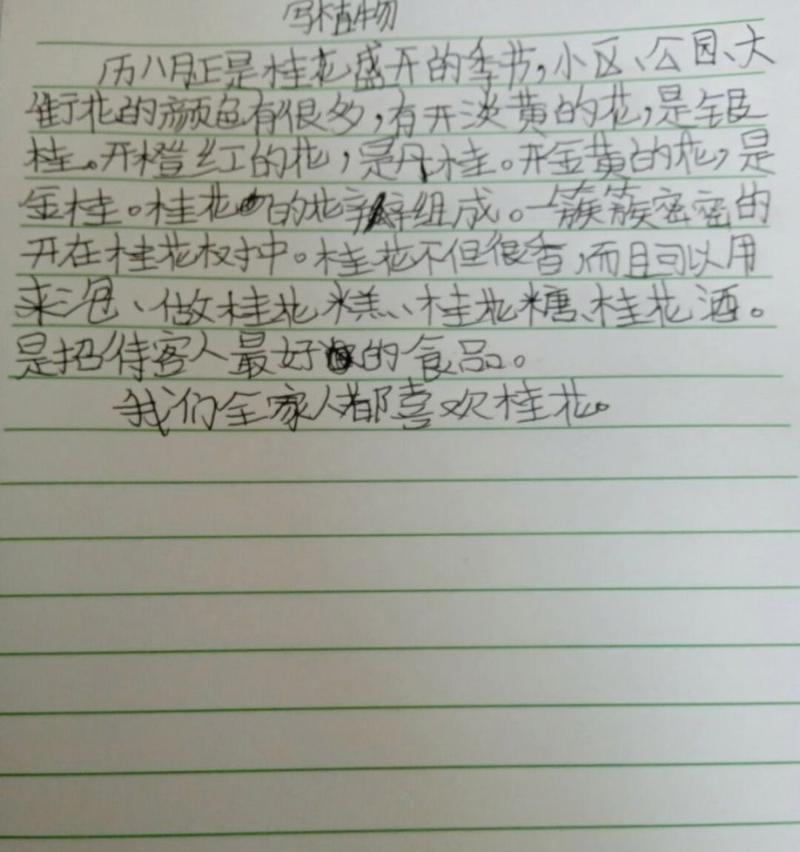 写植物
历八月正是桂花盛开的季节,小区、公园、大
街花的颜色有很多,有开淡黄的花,是银
桂。开橙红的花,是丹桂。开金黄的花,是
金桂。桂花的花组成。一簇簇密密的
开在桂花树中。桂花不但很香,而且可以用
来泡、做桂花糕、桂花糖、桂花酒。
是招待客人最好的食品。
我们全家人都喜欢桂花。